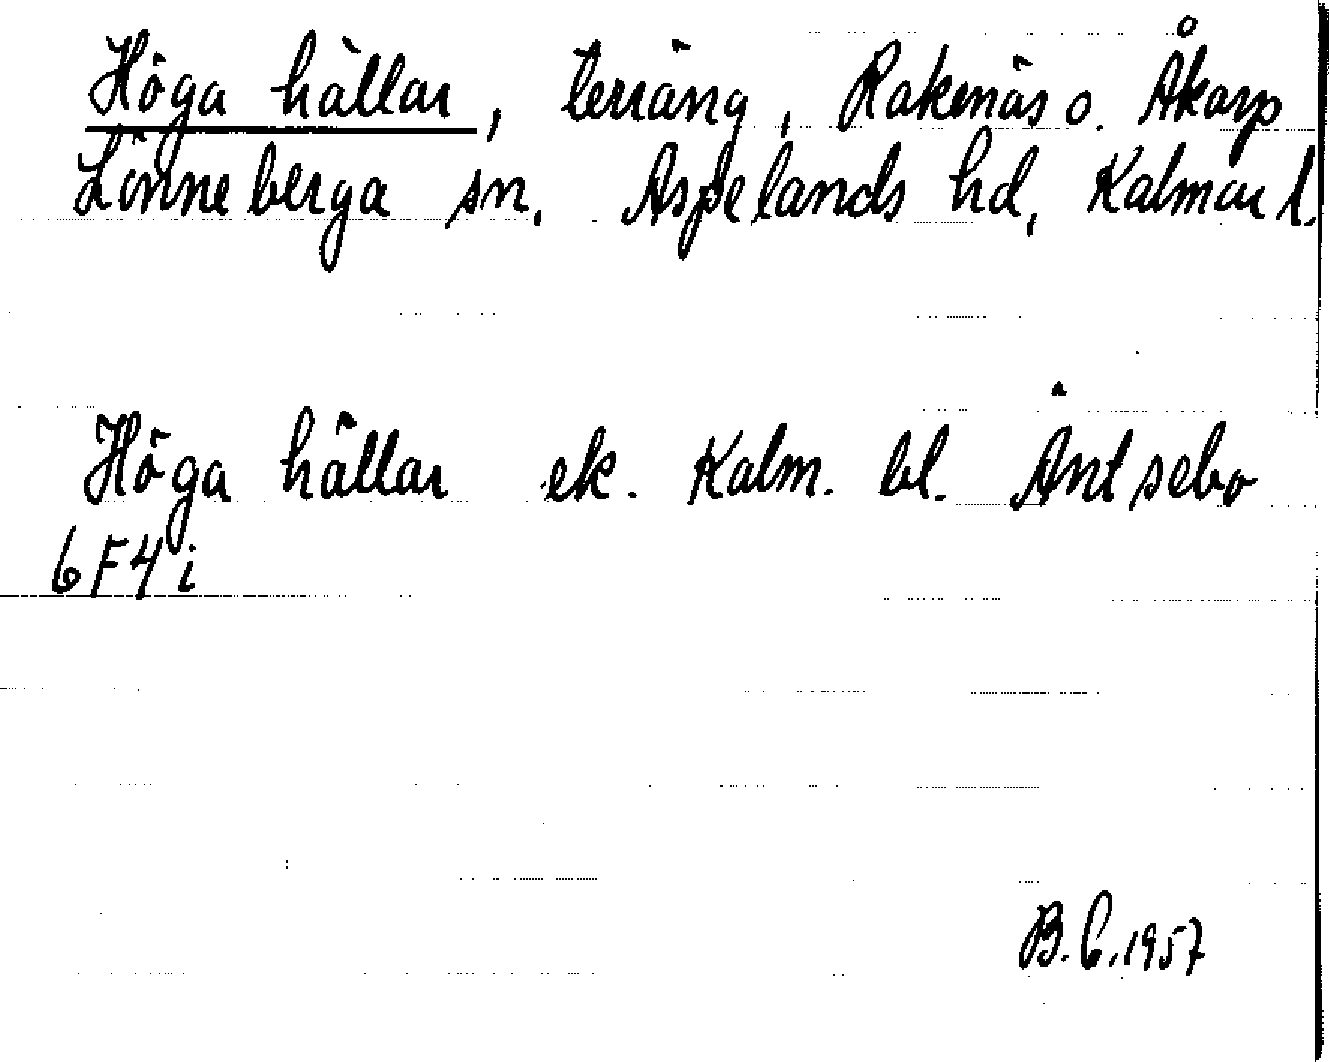 Höga hällar, terräng, Rakenäs o. Åkarp
Lönneberga sn. Aspelands hd, Kalmar l.
Höga hällar ek. Kalm. bl. Åntsebo
6F4i
B.C. 1957